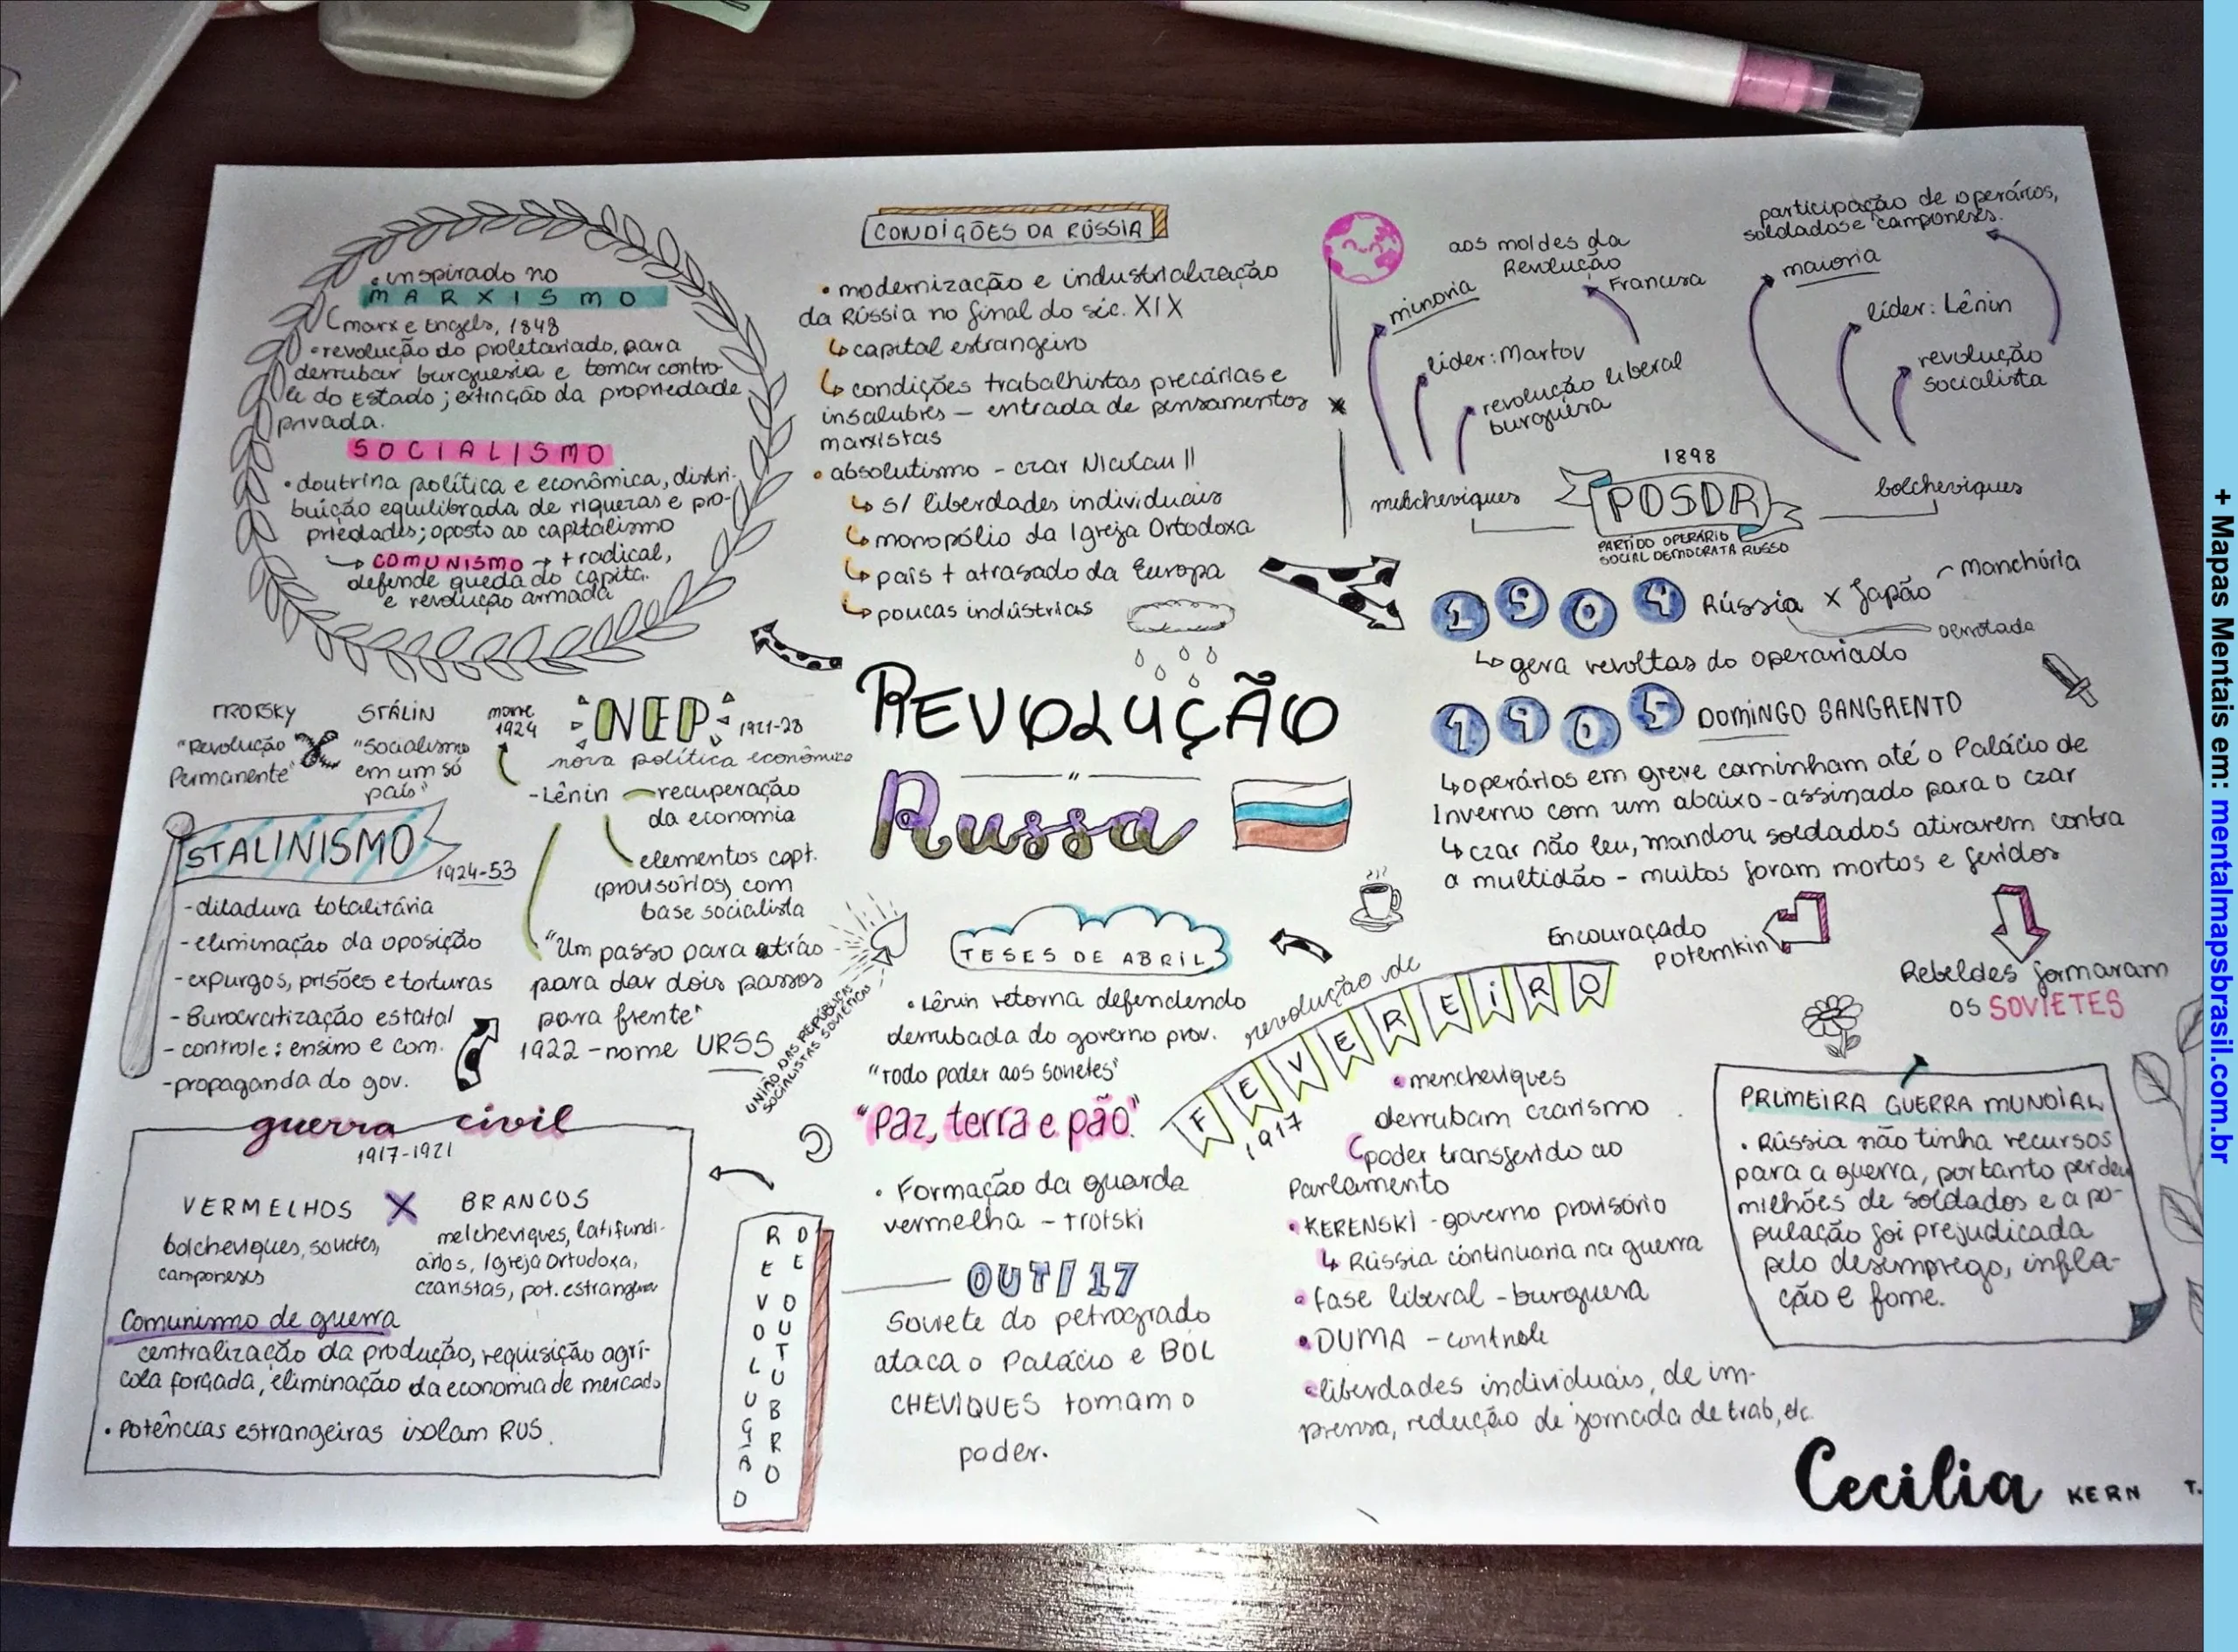 • inspirado no
MARXISMO
(marx e Engels, 1848
• revolução do proletariado, para
derrubar burguesia e tomar contro-
le do Estado; extinção da propriedade
privada.
SOCIALISMO
• doutrina política e econômica, distri-
buição equilibrada de riquezas e pro-
priedades; oposto ao capitalismo
→ COMUNISMO → + radical,
defende queda do capita.
e revolução armada
CONDIÇÕES DA RÚSSIA
• modernização e industrialização
da Rússia no final do séc. XIX
↳ capital estrangeiro
↳ condições trabalhistas precárias e
insalubres – entrada de pensamentos
marxistas
• absolutismo - czar Nicolau II
↳ s/ liberdades individuais
↳ monopólio da Igreja Ortodoxa
↳ país + atrasado da Europa
↳ poucas indústrias
aos moldes da
Revolução
Francesa
minoria
líder: Martov
revolução liberal
burguesa
participação de operários,
soldados e camponeses.
maioria
líder: Lênin
revolução
socialista
1898
mencheviques
POSDR
bolcheviques
PARTIDO OPERÁRIO
SOCIAL DEMOCRATA RUSSO
1904 Rússia x Japão - Manchúria
derrotada
↳ gera revoltas do operariado
1905 DOMINGO SANGRENTO
↳ operários em greve caminham até o Palácio de
Inverno com um abaixo-assinado para o czar
↳ czar não leu, mandou soldados atirarem contra
a multidão - muitos foram mortos e feridos
Encouraçado
Potemkin
Rebeldes formaram
os SOVIETES
REVOLUÇÃO
Russa
TROTSKY
"Revolução
Permanente"
STÁLIN
"Socialismo
em um só
país"
morre
1924
NEP 1921-28
nova política econômica
- Lênin
recuperação
da economia
elementos capt.
(provisórios) com
base socialista
"Um passo para atrás
para dar dois passos
para frente"
1922 - nome URSS
UNIÃO DAS REPÚBLICAS
SOCIALISTAS SOVIÉTICAS
STALINISMO
1924-53
- ditadura totalitária
- eliminação da oposição
- expurgos, prisões e torturas
- Burocratização estatal
- controle: ensino e com.
- propaganda do gov.
TESES DE ABRIL
• Lênin retorna defendendo
derrubada do governo prov.
"Todo poder aos sovietes"
"Paz, terra e pão."
• Formação da guarda
vermelha - Trotski
revolução de
FEVEREIRO
1917
• mencheviques
derrubam czarismo
poder transferido ao
Parlamento
• KERENSKI - governo provisório
↳ Rússia continuaria na guerra
• fase liberal - burguesa
• DUMA - controle
• liberdades individuais, de im-
prensa, redução de jornada de trab, etc.
PRIMEIRA GUERRA MUNDIAL
• Rússia não tinha recursos
para a guerra, portanto perdeu
milhões de soldados e a po-
pulação foi prejudicada
pelo desemprego, infla-
ção e fome.
guerra civil
1917-1921
VERMELHOS X BRANCOS
bolcheviques, sovietes,
camponeses
melcheviques, latifundi-
ários, Igreja Ortodoxa,
czaristas, pot. estrangeira
Comunismo de guerra
centralização da produção, requisição agrí-
cola forçada, eliminação da economia de mercado
• Potências estrangeiras isolam RUS.
REVOLUÇÃO
DE OUTUBRO
OUT/17
Soviete do petrogrado
ataca o Palácio e BOL
CHEVIQUES tomam o
poder.
Cecilia KERN T.
+ Mapas Mentais em: mentalmapsbrasil.com.br